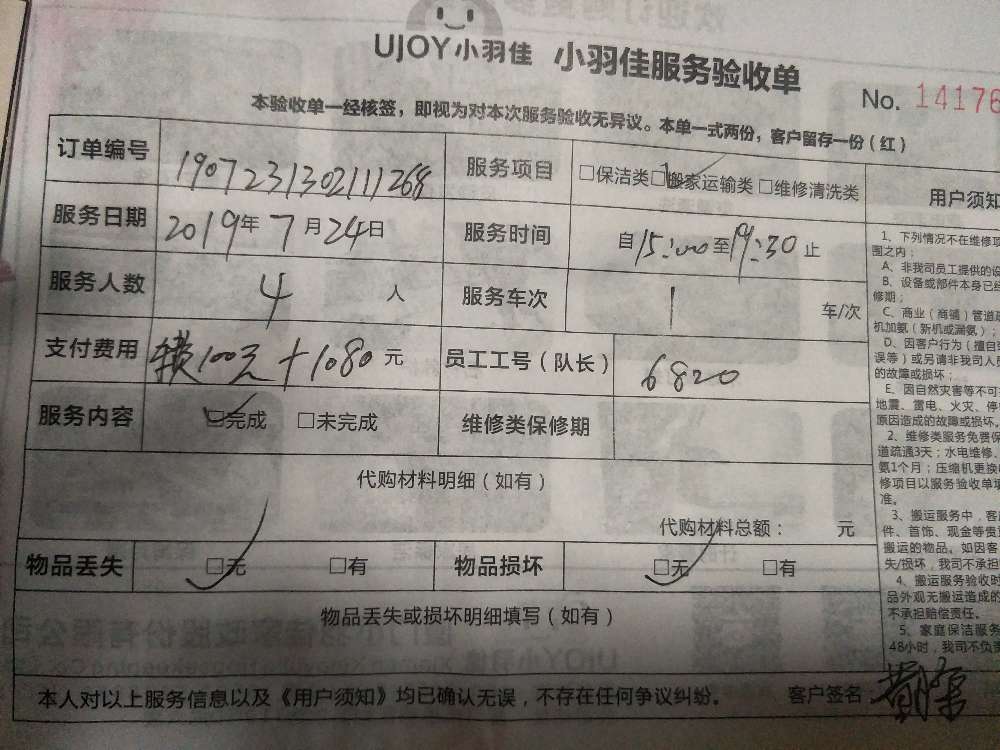 UJOY小羽佳 小羽佳服务验收单
No. 14176
本验收单一经核签，即视为对本次服务验收无异议。本单一式两份，客户留存一份（红）
订单编号 190723130211126 服务项目 □保洁类□搬家运输类□维修清洗类
用户须知
服务日期 2019年7月24日 服务时间 自15:00至19:30止
服务人数 4人 服务车次 1 车/次
支付费用 100元+1080元 员工工号（队长） 6820
服务内容 □完成 □未完成 维修类保修期
代购材料明细（如有）
代购材料总额： 元
物品丢失 □无 □有 物品损坏 □无 □有
物品丢失或损坏明细填写（如有）
本人对以上服务信息以及《用户须知》均已确认无误，不存在任何争议纠纷。 客户签名：
1、下列情况不在维修
围之内：
A、非我司员工提供的设
B、设备或部件本身已经
修期；
C、商业（商铺）管道疏
机加氨（新机或漏氨）；
D、因客户行为（擅自
误等）或另请非我司人
的故障或损坏；
E、因自然灾害等不可
地震、雷电、火灾、停
原因造成的故障或损坏。
2、维修类服务免费保
道疏通3天；水电维修、
氨1个月；压缩机更换
修项目以服务验收单填
准。
3、搬运服务中，客
件、首饰、现金等贵
搬运的物品。如因客
失/损坏，我司不承担
4、搬运服务验收时
品外观无搬运造成的
不承担赔偿责任。
5、家庭保洁服务
48小时，我司不负责